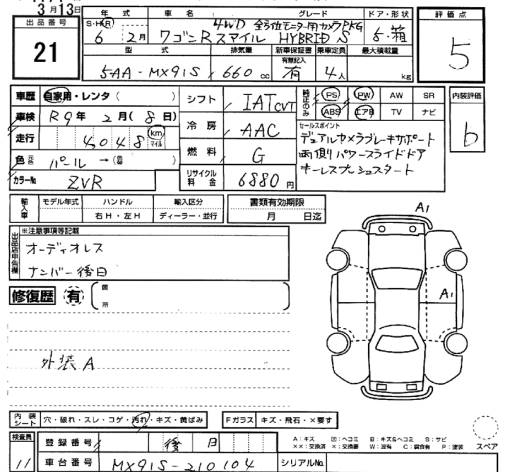 3月13日
出品番号
21
年式 車名 グレード ドア・形状
S・H・R 6年 2月 ワゴンRスマイル 4WD 全方位モニター用カメラPKG HYBRID S 5・箱
型式 排気量 新車保証書 乗車定員 最大積載量
5AA-MX91S 660cc 有無記入 有 4人 kg
評価点
5
内装評価
b
車歴 自家用・レンタ( )
車検 R9年 2月(8日)
走行 4048 km マイル
色 パール→( )
カラーNo ZVR
シフト IAT CVT
冷房 AAC
燃料 G
リサイクル料金 6880円
純正のみ PS PW AW SR
ABS エアB TV ナビ
セールスポイント
デュアルカメラブレーキサポート
両側パワースライドドア
キーレスプッシュスタート
輸入車 モデル年式 ハンドル 輸入区分
右H・左H ディーラー・並行
書類有効期限
月 日迄
出品店申告欄 ※注意事項等記載
オーディオレス
ナンバー後日
修復歴 有 箇所
外装A
A1
A1
内装シート 穴・破れ・スレ・コゲ・汚れ・キズ・黄ばみ
Fガラス キズ・飛石・×要す
検査員 11
登録番号 後日
車台番号 MX91S-210104 シリアルNo.
A:キズ U:ヘコミ B:キズ&ヘコミ S:サビ
××:交換済 ×:交換要 W:波有 C:腐食有 P:塗装
スペア